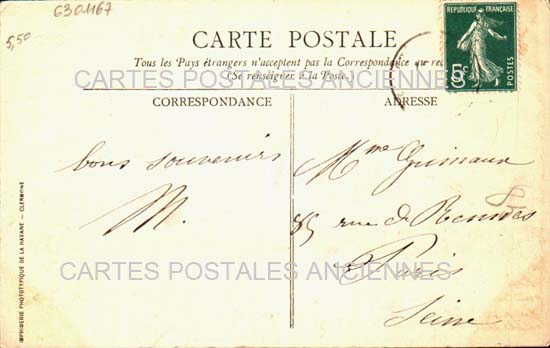 6301167
5,50
CARTE POSTALE
Tous les Pays étrangers n'acceptent pas la Correspondance au rec
(Se renseigner à la Poste.)
CARTES POSTALES ANCIENNES
RÉPUBLIQUE FRANÇAISE
5c
POSTES
CORRESPONDANCE
ADRESSE
bons souvenirs
M.
Mme Grimaux
85 rue de Rennes
Paris
Seine
CARTES POSTALES ANCIENNES
IMPRIMERIE PHOTOTYPIQUE DE LA HAVANE — CLERMONT